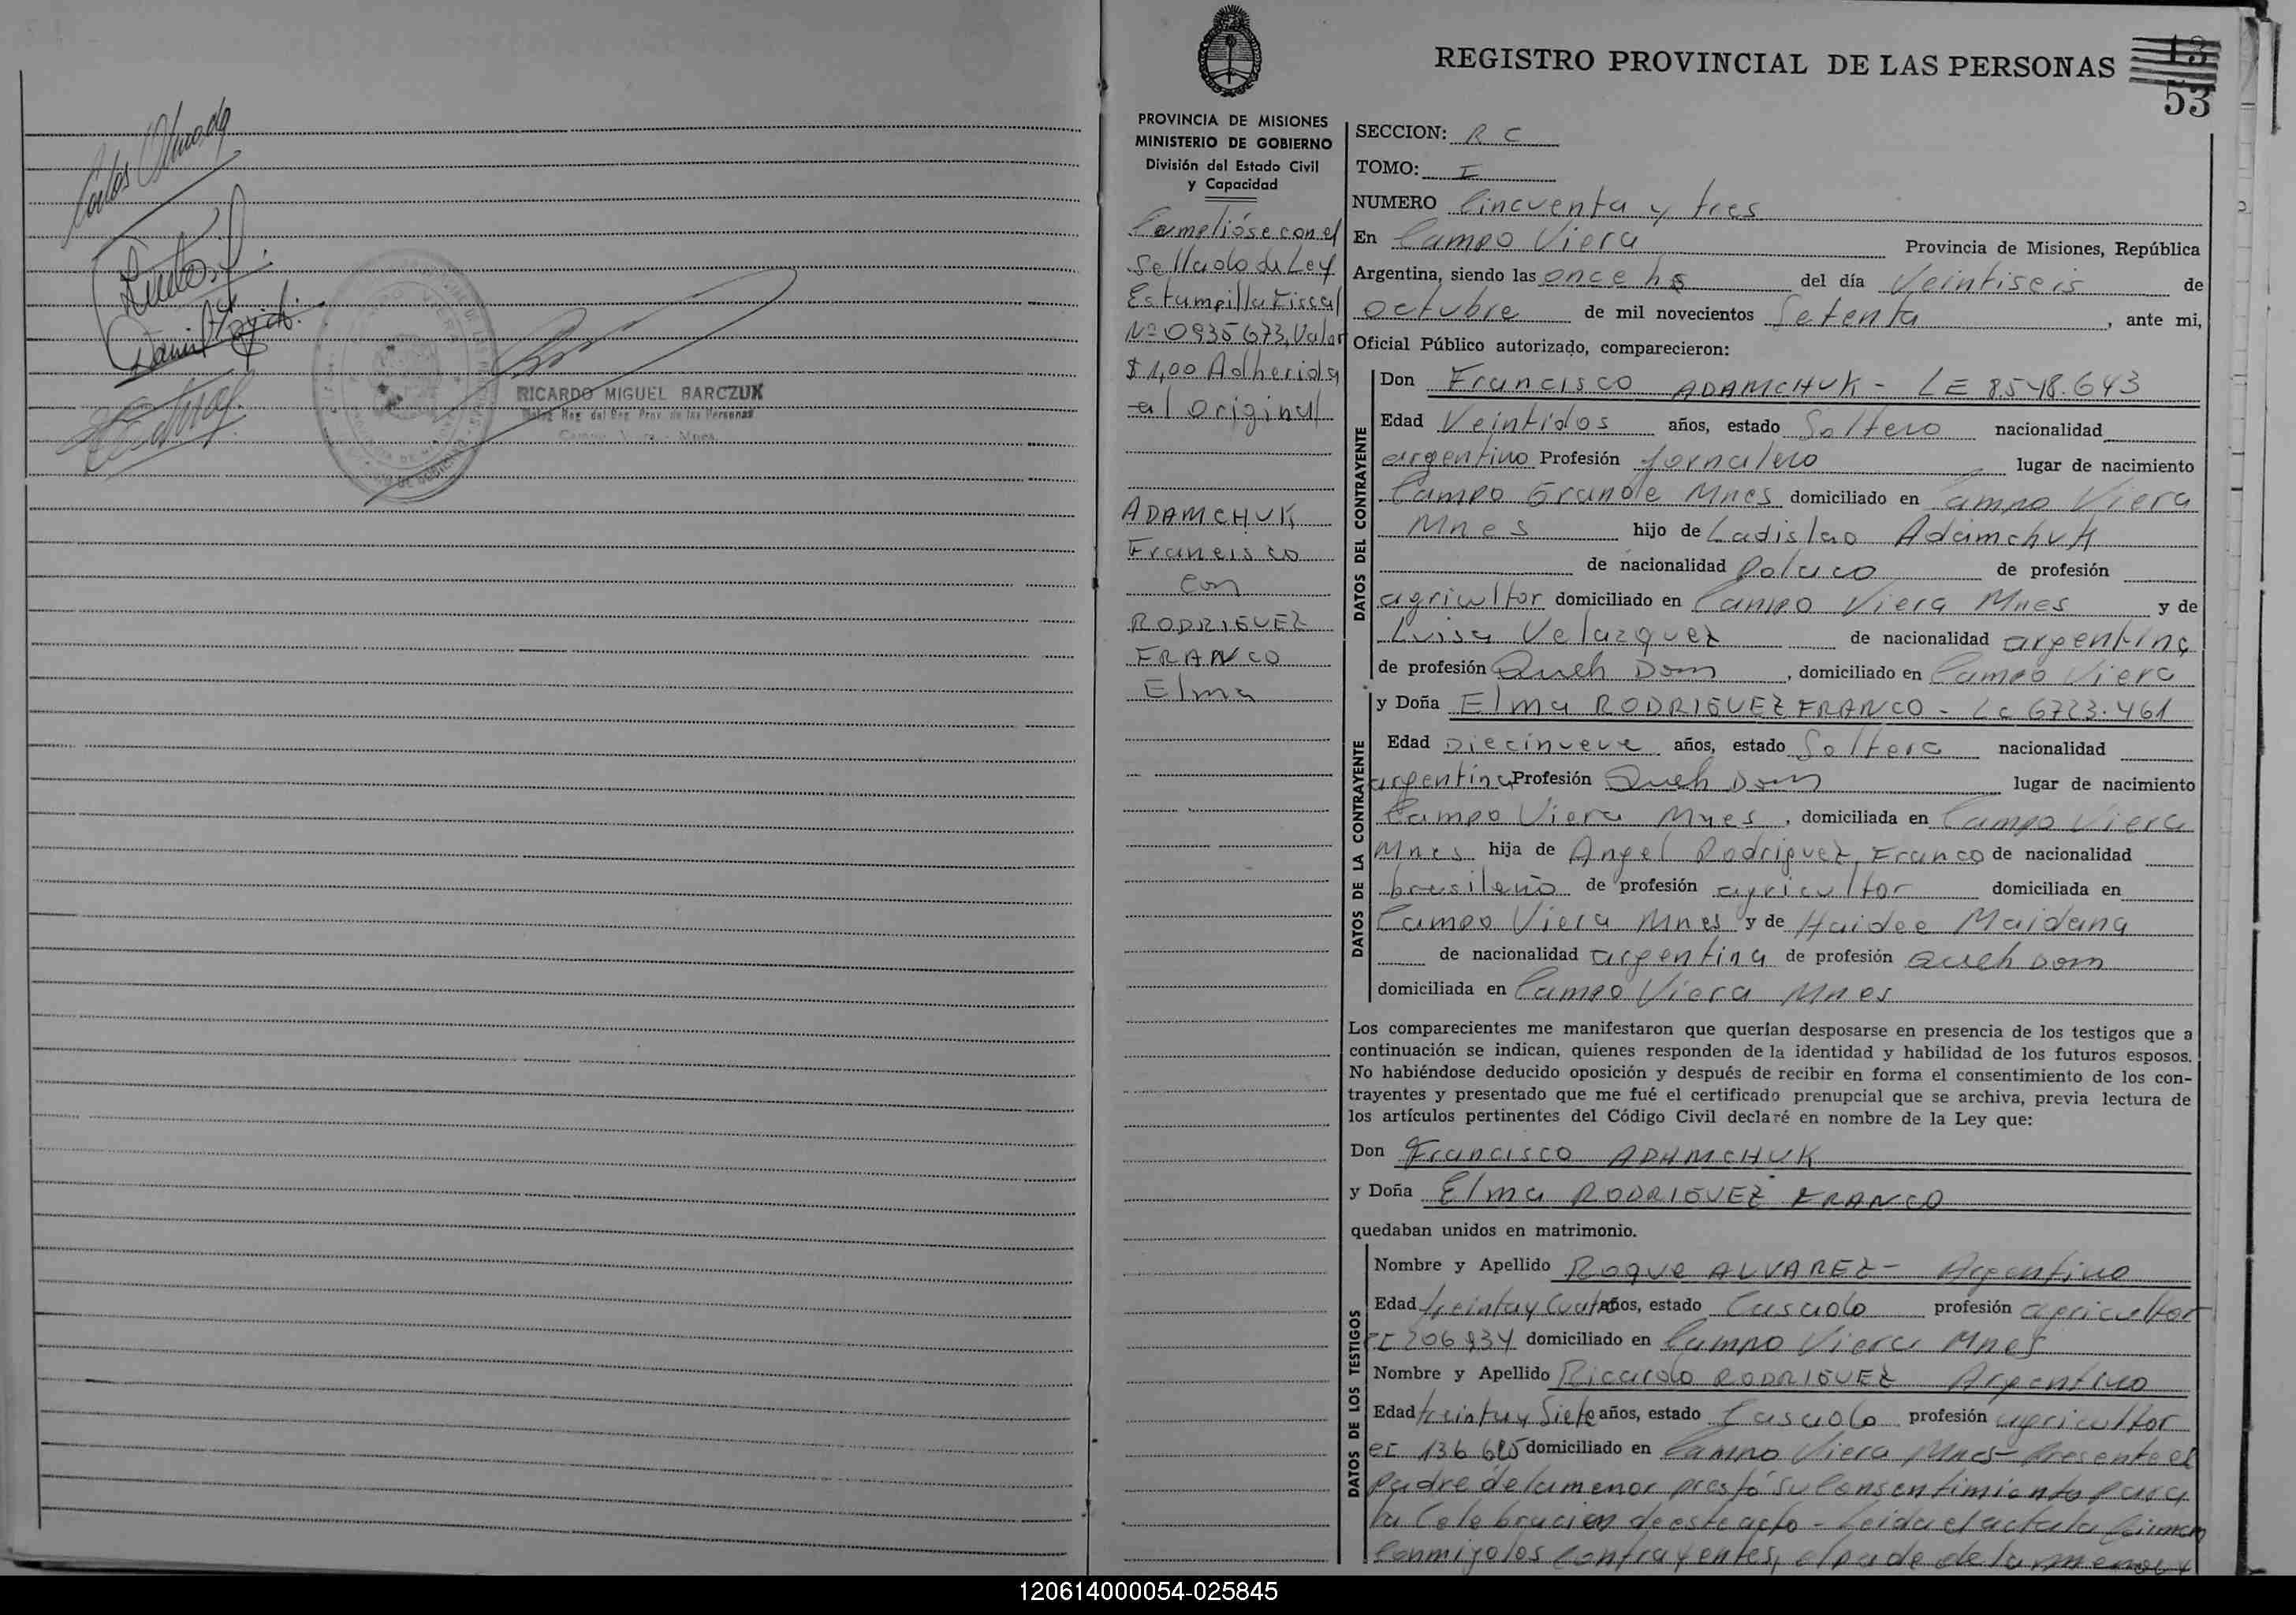 Carlos Olmedo
RICARDO MIGUEL BARCZUK
REGISTRO PROVINCIAL DE LAS PERSONAS
13
53
PROVINCIA DE MISIONES
MINISTERIO DE GOBIERNO
División del Estado Civil
y Capacidad
con el
Sellado de Ley
Estampilla Fiscal
Nº 0935673, Valor
$ 1,00 Adherida
al original
ADAMCHUK
Francisco
con
RODRIGUEZ
FRANCO
Elma
SECCION: R C
TOMO: I
NUMERO Cincuenta y tres
En Campo Viera Provincia de Misiones, República
Argentina, siendo las once hs del día Veintiseis de
octubre de mil novecientos Setenta, ante mi,
Oficial Público autorizado, comparecieron:
DATOS DEL CONTRAYENTE
Don Francisco ADAMCHUK - LE 8.548.643
Edad Veintidos años, estado Soltero nacionalidad
argentino Profesión jornalero lugar de nacimiento
Campo Grande Mnes domiciliado en Campo Viera
Mnes hijo de Ladislao Adamchuk
de nacionalidad Polaco de profesión
agricultor domiciliado en Campo Viera Mnes y de
Luisa Velazquez de nacionalidad argentina
de profesión Queh Dom, domiciliado en Campo Viera
DATOS DE LA CONTRAYENTE
y Doña Elma RODRIGUEZ FRANCO - Lc 6723.461
Edad Diecinueve años, estado Soltera nacionalidad
argentina Profesión Queh Dom lugar de nacimiento
Campo Viera Mnes, domiciliada en Campo Viera
Mnes hija de Angel Rodriguez Franco de nacionalidad
brasileño de profesión agricultor domiciliada en
Campo Viera Mnes y de Haidee Maidana
de nacionalidad argentina de profesión Queh Dom
domiciliada en Campo Viera Mnes
Los comparecientes me manifestaron que querían desposarse en presencia de los testigos que a
continuación se indican, quienes responden de la identidad y habilidad de los futuros esposos.
No habiéndose deducido oposición y después de recibir en forma el consentimiento de los con-
trayentes y presentado que me fué el certificado prenupcial que se archiva, previa lectura de
los artículos pertinentes del Código Civil declaré en nombre de la Ley que:
Don Francisco ADAMCHUK
y Doña Elma RODRIGUEZ FRANCO
quedaban unidos en matrimonio.
DATOS DE LOS TESTIGOS
Nombre y Apellido Roque ALVAREZ - Argentino
Edad treinta y Cuatro años, estado Casado profesión agricultor
206.934 domiciliado en Campo Viera Mnes
Nombre y Apellido Ricardo RODRIGUEZ Argentino
Edad treinta y Siete años, estado Casado profesión agricultor
136 domiciliado en Campo Viera Mnes - Presente el
padre de la menor prestó su Consentimiento para
la Celebracion de este acto - Leida el acta la firman
Conmigo los contrayentes, el padre de la menor y
120614000054-025845